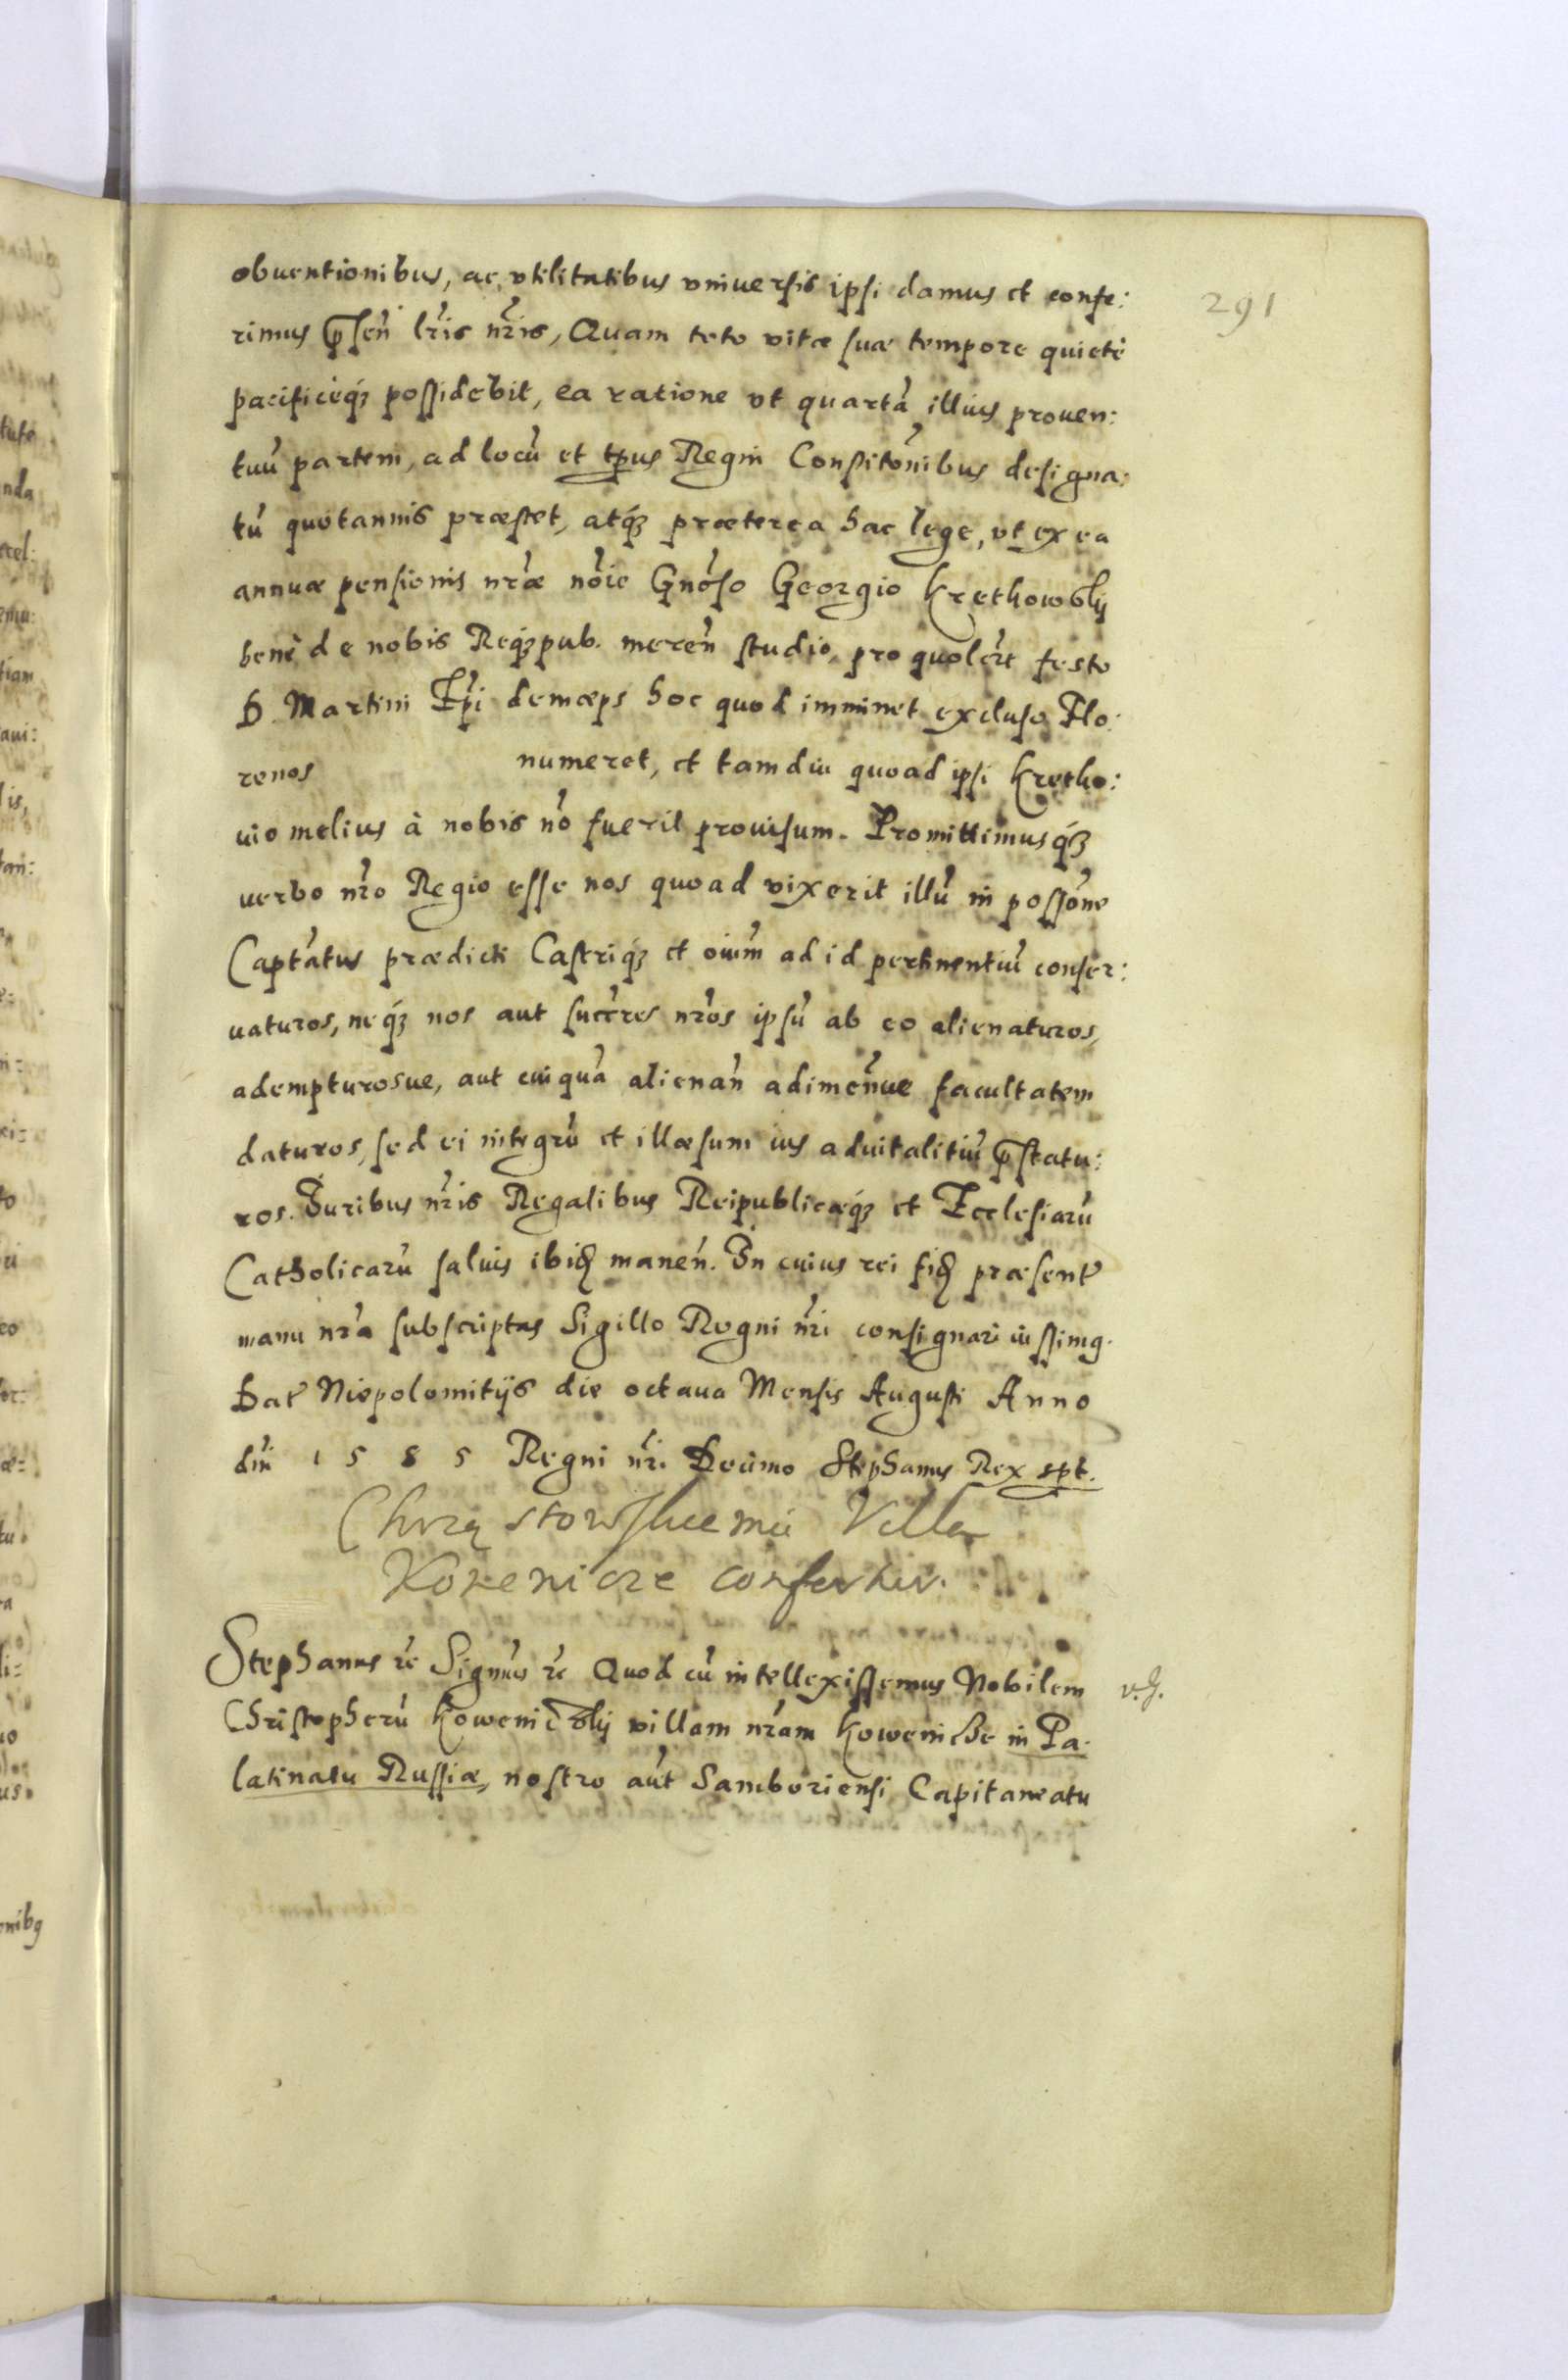 291
obuentionibus, ac vtilitatibus vniuersis ipsi damus et confe:
rimus p̱sen̄ lr̄is nr̄is, Quam toto vitæ suæ tempore quietè
pacificèq́ꝫ possidebit, ea ratione vt quartā illius prouen:
tuū partem, ad locū et tp̄us Regni Constitōnibus designa:
tū quotannis præstet, atq́ꝫ præterea hac lege, vt ex ea
annuæ pensionis nr̄æ nōie Gnōso Georgio Krethowsky
benè de nobis Reqꝫpub. meren̄ studio, pro quolȩt festo
D. Martini Ep̄i deinceps hoc quod imminet excluso Flo:
renos numeret, et tamdiu quoad ipsi Kretko:
uio melius à nobis nō fuerit prouisum. Promittimusq́ꝫ
verbo nr̄o Regio esse nos quoad vixerit illū in possōne
Captātus prædicti Castriq́ꝫ et oīum ad id pertinentiū conser:
uaturos, neq́ꝫ nos aut succ̄res nr̄os ipsū ab eo alienaturos,
adempturosue, aut cuiquā alienān adimen̄ue facultatem
daturos, sed ei integrū et illæsum ius aduitalitiū p̱statu:
ros. Iuribus nr̄is Regalibus Reipublicæq́ꝫ et Ecclesiarū
Catholicarū saluis ibid̨ manen̄. In cuius rei fid̨ præsent̄
manu nr̄a subscriptas Sigillo Regni nr̄i consignari iussimꝯ.
Dat̄ Niepolomitijs die octaua Mensis Augusti Anno
dn̄i 1585 Regni nr̄i Decimo Stephanus Rex spt.
Chrząstowskiemu Villa
Kowenicze confertur.
Stephanus etc̄ Signm̄us etc̄ Quod cū intellexissemus Nobilem v. J.
Christopherū Kowenicsky villam nr̄am Koweniche in Pa:
latinatu Russiæ, nostro aūt Samboriensi Capitaneatu